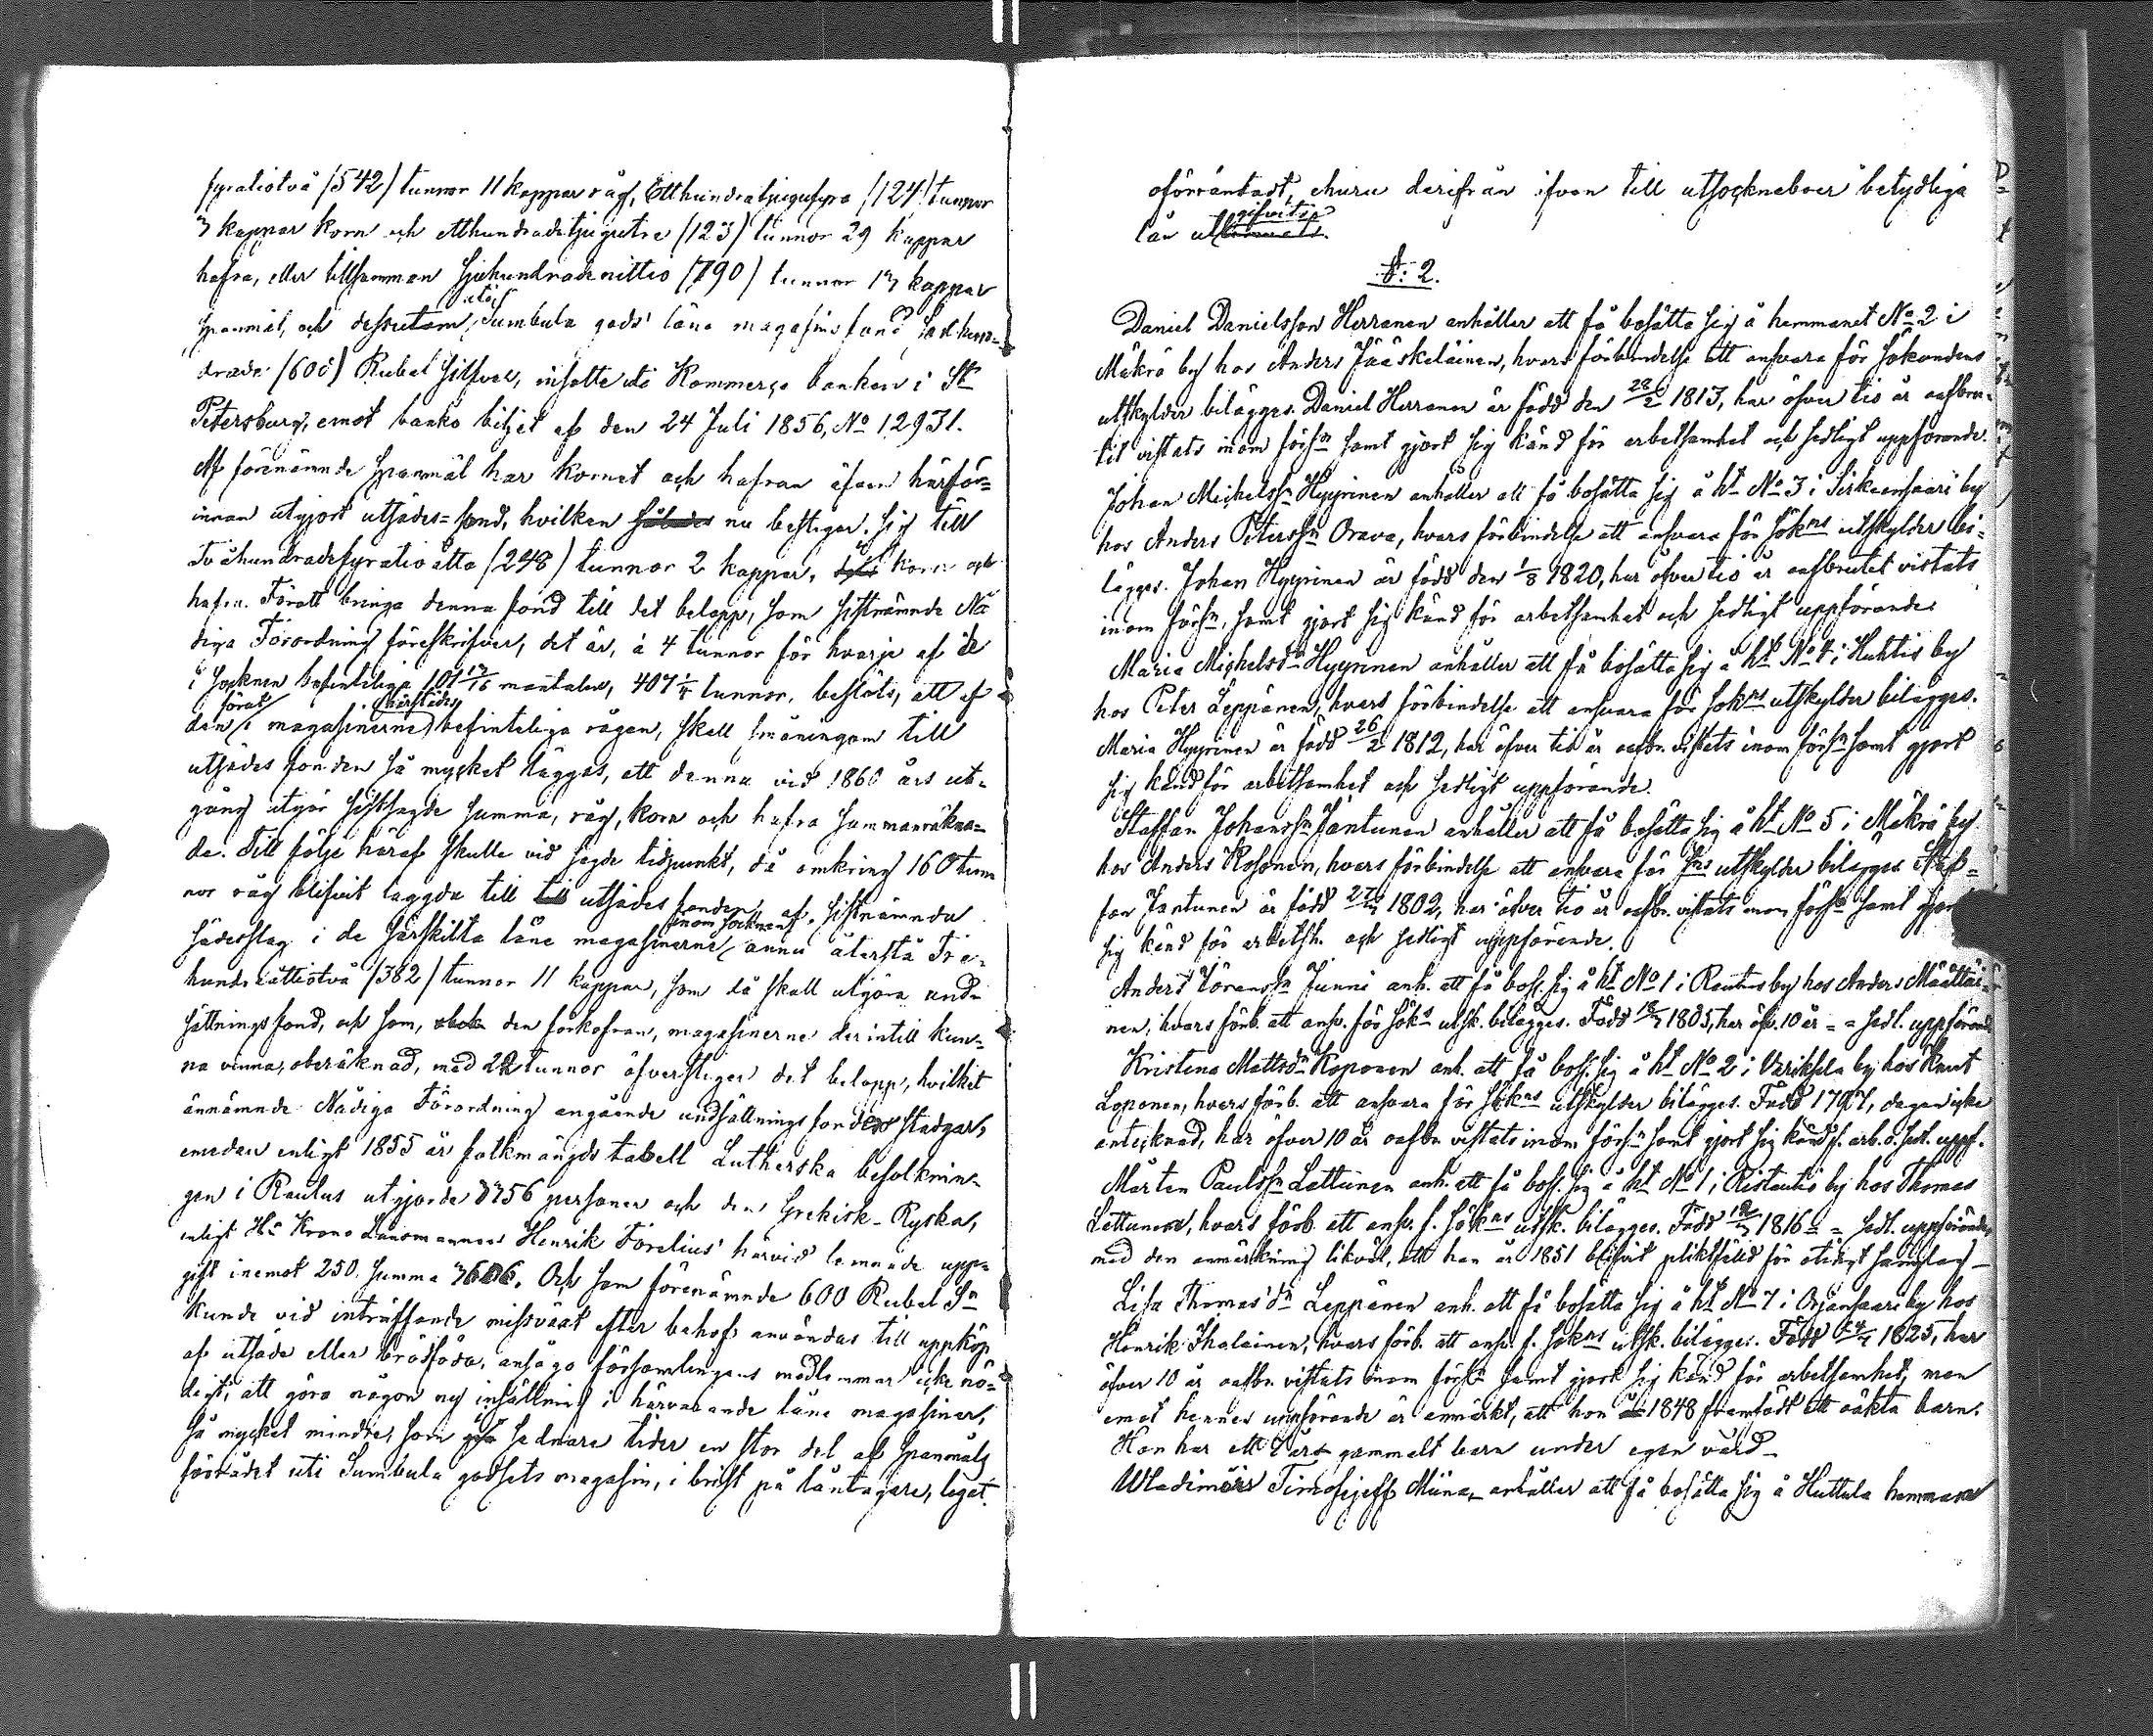 fyratiotvå (542) tunnor 11 kappar råg, Etthundratjugufyra (124) tunnor
3 kappar korn och etthundradetjugutre (123) tunnor 29 kappar
hafra, eller tillsamman sjuhundradenittio (790) tunnor 13 kappar
spanmål, och dessutom, utaf Sumbula gods' låne magasins fond, Sexhun-
drade (600) Rubel Silfver, insatte uti Kommerse banken i St
Petersburg, emot banko biljet af den 24 Juli 1856, No 12931.
Af förenämnde spanmål har kornet och hafran äfven härför-
innan utgjort utsädes-fond, hvilken således nu bestiger sig till
Tvåhundradefyratioåtta (248) tunnor 2 kappar, korn och
hafra. Föratt bringa denna fond till det belopp, som sistnämnde Nå
diga Förordning föreskrifver, det är, à 4 tunnor för hvarje af de
i socknen befinteliga 101 13/16 mantalen, 407 1/4 tunnor, beslöts, att af
den i förut magasinerne härstädes befinteliga rågen, skall småningom till
utsädes fonden så mycket läggas, att denna vid 1860 års ut-
gång utgör sistsagde summa, råg, korn och hafra sammanräkna-
de. Till följe häraf skulle vid sagde tidpunkt, då omkring 160 tun
nor råg blifvit laggda till till utsädes fonden, af sistnämnda
sädesslag i de särskilta låne magasinerne inom socknen ännu återstå Tre-
hundraåttiotvå (382) tunnor 11 kappar, som då skall utgöra und-
sättnings fond, och som, den förkofran, magasinerne derintill kun-
na vinna, oberäknad, med 22 tunnor öfverstiger det belopp, hvilket
ännämnde Nådiga Förordning angående undsättnings fonder stadgar,
emedan enligt 1855 års folkmängds tabell Lutherska befolknin-
gen i Rautus utgjorde 3356 personer och den Grekisk-Ryska,
enligt Hr Krono Länsmannen Henrik Forelius' härvid lemnade upp-
gift inemot 250. Summa 3606. Och som förenämnde 600 Rubel Sr
kunde vid inträffande missväxt efter behof användas till uppköp
af utsäde eller brödföda, ansågo församlingens medlemmar icke nö-
digt, att göra någon ny insättning i härvarande låne magasiner,
så mycket mindre, som på sednare tider en stor del af spanmåls
förrådet uti Sumbula godsets magasin, i brist på låntagare, legat
oförräntadt, ehuru derifrån äfven till utsockneboer betydliga
lån utgifvits.
§: 2.
Daniel Danielsson Herranen anhåller att få bosätta sig å hemmanet No 2 i
Mäkrä by hos Anders Jääskeläinen, hvars förbindelse att ansvara för sökandens
utskylder bilägges. Daniel Herranen är född den 28/2 1813, har öfver tio år oafbru-
tit vistats inom förs:n samt gjort sig känd för arbetsamhet och sedligt uppförande.
Johan Michelss:n Hyyrinen anhåller att få bosätta sig å ht No 3 i Sirkiensaari by
hos Anders Peterss:n Orava, hvars förbindelse att ansvara för sökns utskylder bi-
lägges. Johan Hyyrinen är född den 1/8 1820, har öfver tio år oafbrutet vistats
inom förs:n, samt gjort sig känd för arbetsamhet och sedligt uppförande.
Maria Michelsd:r Hyyrinen anhåller att få bosätta sig å ht No 4 i Huhtis by
hos Peter Leppänen, hvars förbindelse att ansvara för sökns utskylder bilägges.
Maria Hyyrinen är född 26/2 1812, har öfver tio år oafbr. vistats inom förs:n samt gjort
sig känd för arbetsamhet och sedligt uppförande.
Staffan Johanss:n Jantunen anhåller att få bosätta sig å ht No 5 i Mäkrä by
hos Anders Kosonen, hvars förbindelse att ansvara för sns utskylder bilägges. Staf-
fan Jantunen är född 27/12 1802, har öfver tio år oafbr. vistats inom förs:n samt gjort
sig känd för arbetsh. och sedligt uppförande.
Anders Göranss:n Junni anh. att få bos. sig å ht No 1 i Rautus by hos Anders Määttäi-
nen, hvars förb. att ansv. för sökns utsk. bilägges. Född 1805, har öfv. 10 år - - sedl. uppförand.
Kristina Mattsd:r Koponen anh. att få bos. sig å ht No 2 i Variksela by hos Knut
Loponen, hvars förb. att ansvara för sökns utskylder bilägges. Född 1797, dagen icke
antecknad, har öfver 10 år oafbr vistats inom förs:n samt gjort sig känd f. arb. o. sed. uppf.
Mårten Paulss:n Lattunen anh. att få bos. sig å ht No 1 i Ristautis by hos Thomas
Lattunen, hvars förb. att ansv. f. sökns utsk. bilägges. Född 1816 - - sedl. uppförande
med den anmärkning likväl, att han år 1851 blifvit pliktfälld för otidigt samlag –
Lisa Thomasd:r Leppänen anh. att få bosätta sig å ht No 7 i Orjansaari by hos
Henrik Ihalainen, hvars förb. att ansv. f. sökns utsk. bilägges. Född 1825, har
öfver 10 år oafbr. vistats inom förs:n samt gjort sig känd för arbetsamhet, men
emot hennes uppförande är anmärkt, att hon år 1848 framfödt ett oäkta barn.
Hon har ett års gammalt barn under egen vård –
Wladimär Timofejeff Miina, anhåller att få bosätta sig å Huttula hemman